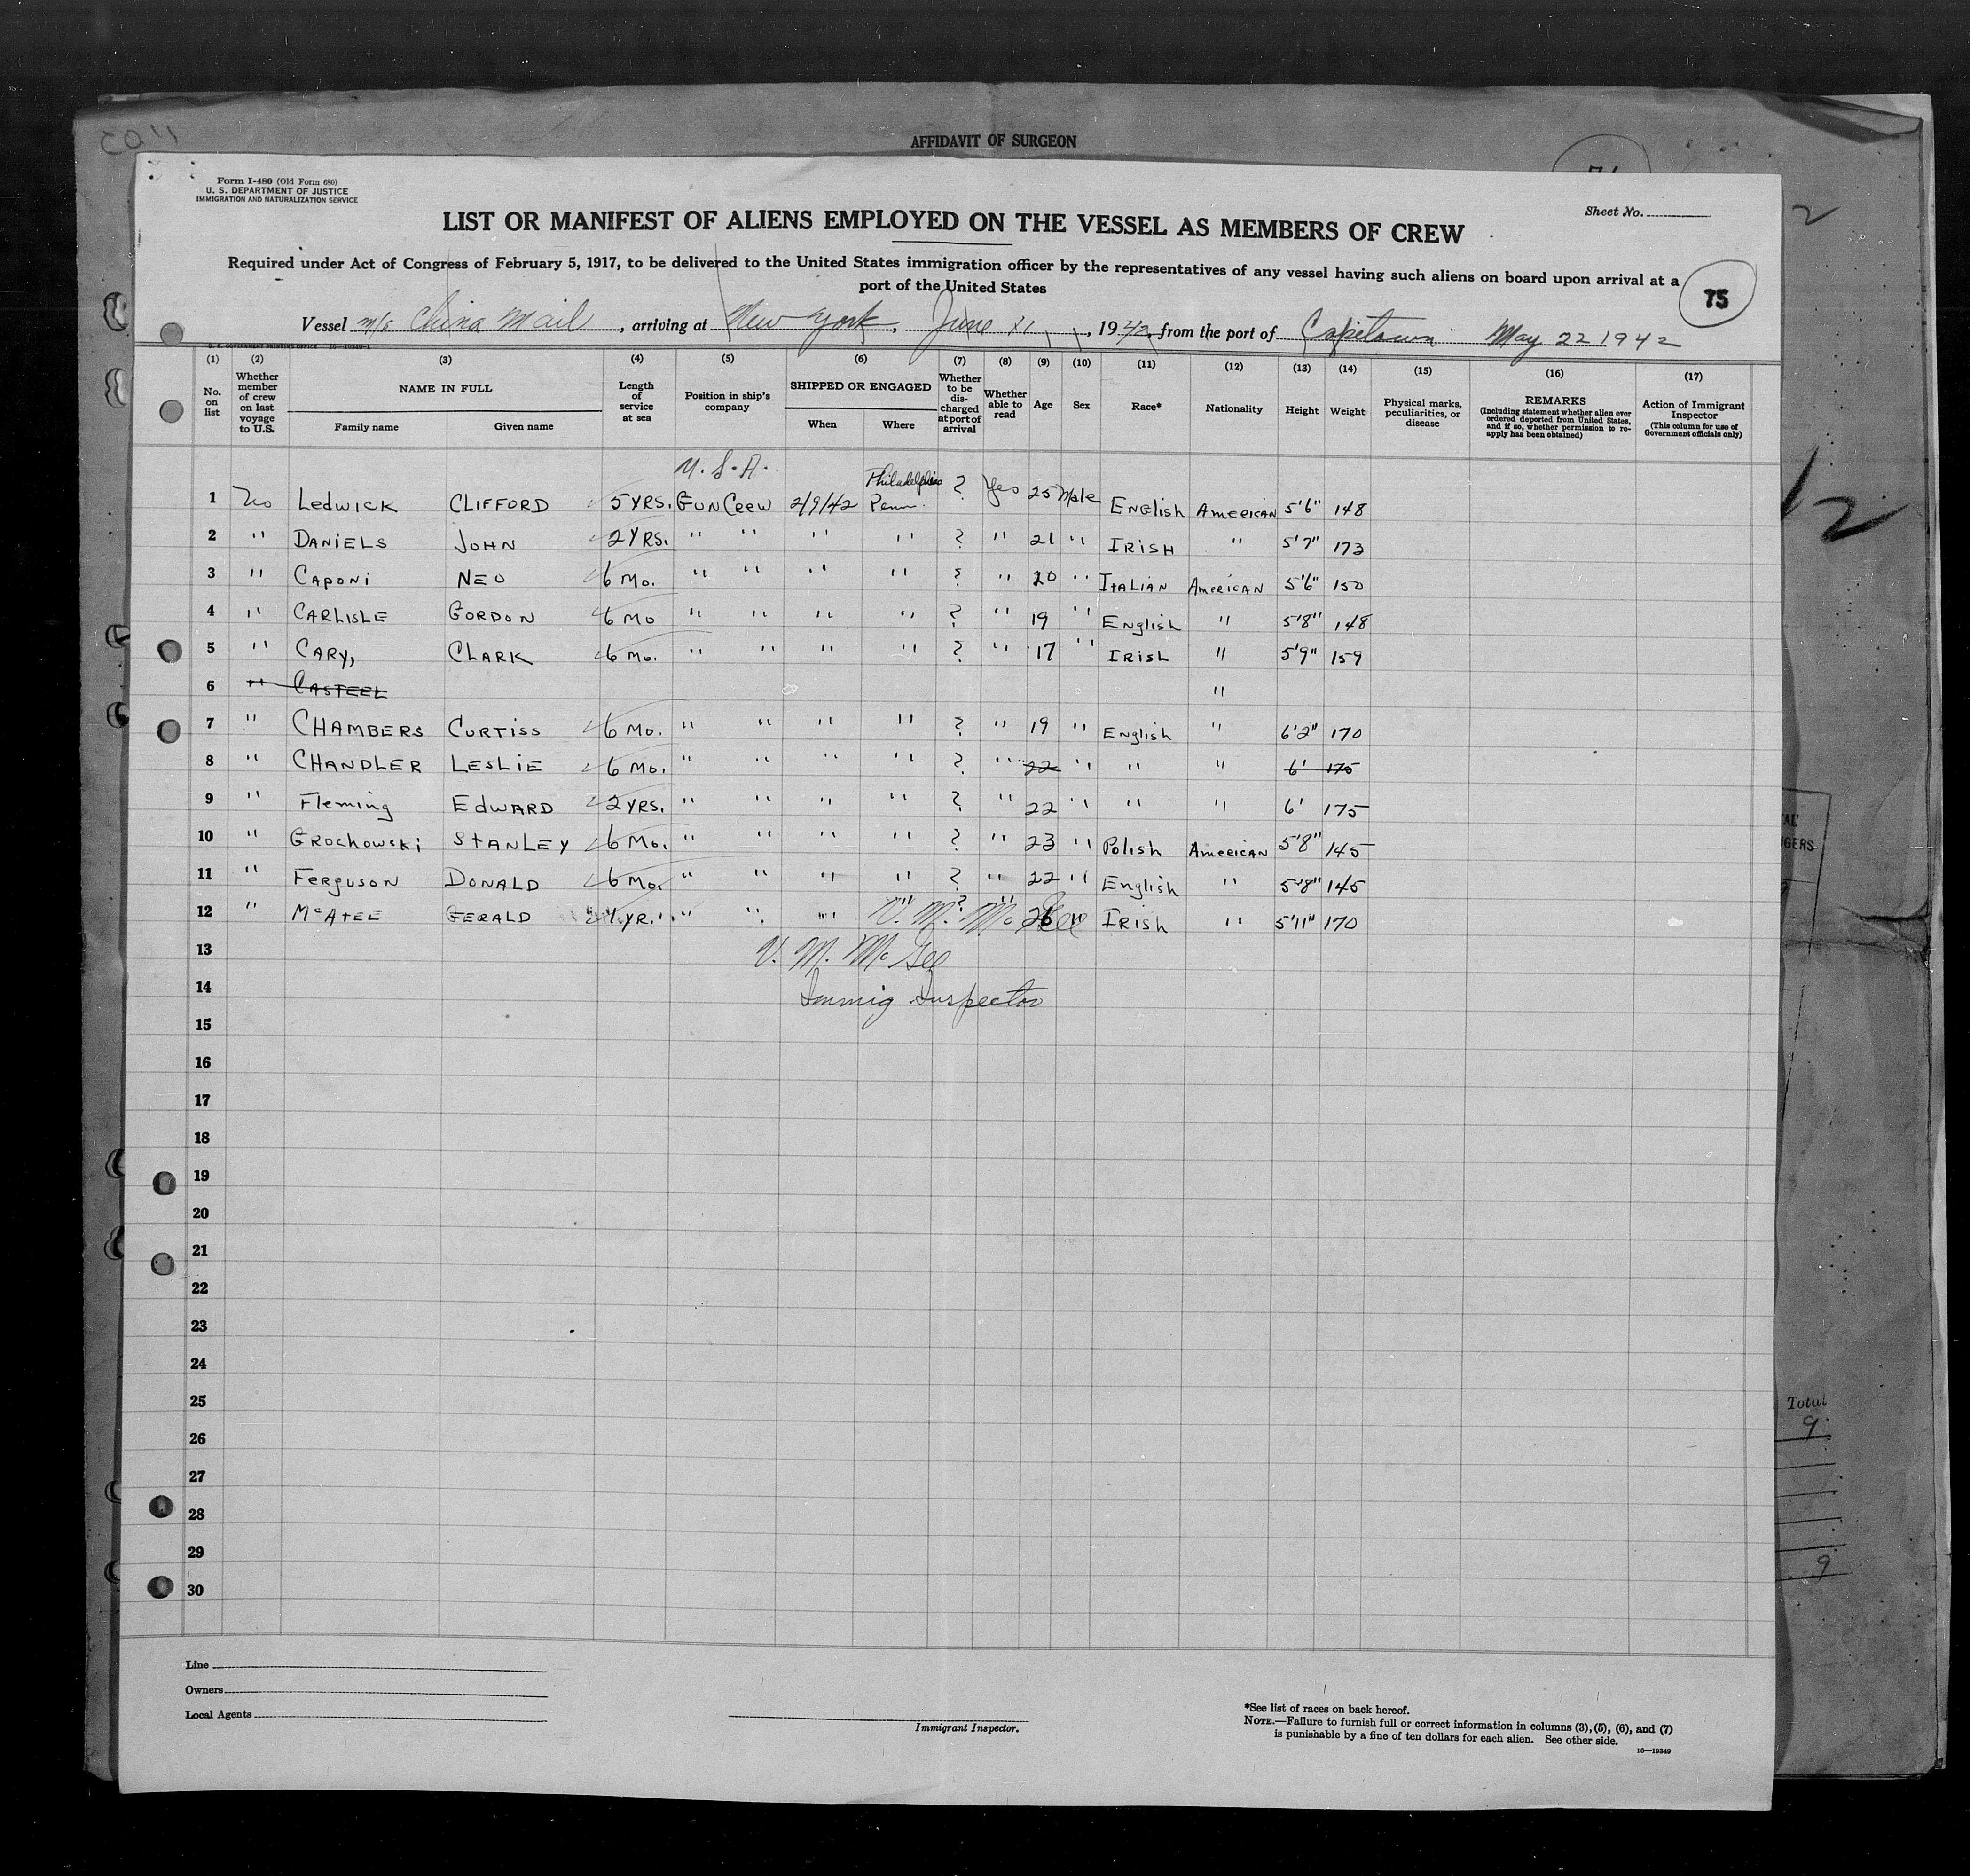 AFFIDAVIT OF SURGEON
Form I-480 (Old Form 680)
U. S. DEPARTMENT OF JUSTICE
IMMIGRATION AND NATURALIZATION SERVICE
Sheet No.
LIST OR MANIFEST OF ALIENS EMPLOYED ON THE VESSEL AS MEMBERS OF CREW
Required under Act of Congress of February 5, 1917, to be delivered to the United States immigration officer by the representatives of any vessel having such aliens on board upon arrival at a
port of the United States
75
Vessel m/s China Mail, arriving at New York, June 11, 1942, from the port of Capetown May 22 1942
(1) (2) (3) (4) (5) (6) (7) (8) (9) (10) (11) (12) (13) (14) (15) (16) (17)
No. on list
Whether member of crew on last voyage to U.S.
NAME IN FULL
Family name
Given name
Length of service at sea
Position in ship's company
SHIPPED OR ENGAGED
When
Where
Whether to be discharged at port of arrival
Whether able to read
Age
Sex
Race*
Nationality
Height
Weight
Physical marks, peculiarities, or disease
REMARKS
(Including statement whether alien ever ordered deported from United States, and if so, whether permission to re-apply has been obtained)
Action of Immigrant Inspector
(This column for use of Government officials only)
U. S. A.
1 No Ledwick CLIFFORD 5 YRS. GUN CREW 2/9/42 Philadelphia Penn. ? Yes 25 Male ENGlish AMERICAN 5'6" 148
2 " DANIELS JOHN 2 YRS. " " " " ? " 21 " IRISH " 5'7" 173
3 " CAPONI NEO 6 MO. " " " " ? " 20 " ITALIAN AMERICAN 5'6" 150
4 " CARLISLE GORDON 6 MO " " " " ? " 19 " English " 5'8" 148
5 " CARY, CLARK 6 MO. " " " " ? " 17 " IRISH " 5'9" 159
6 " CASTEEL "
7 " CHAMBERS CURTISS 6 MO. " " " " ? " 19 " English " 6'2" 170
8 " CHANDLER LESLIE 6 MO. " " " " ? " 22 " " " 6' 175
9 " Fleming EDWARD 2 YRS. " " " " ? " 22 " " " 6' 175
10 " GROCHOWSKI STANLEY 6 MO. " " " " ? " 23 " Polish AMERICAN 5'8" 145
11 " FERGUSON DONALD 6 MO. " " " " ? " 22 " English " 5'8" 145
12 " McATEE GERALD 1 YR. " " " " ? " 26 " IRISH " 5'11" 170
V. M. McGee
13 V. M. McGee
14 Immig Inspector
15
16
17
18
19
20
21
22
23
24
25
26
27
28
29
30
Total
9
9
Line
Owners
Local Agents
Immigrant Inspector.
*See list of races on back hereof.
NOTE.—Failure to furnish full or correct information in columns (3), (5), (6), and (7)
is punishable by a fine of ten dollars for each alien. See other side.
16—19349